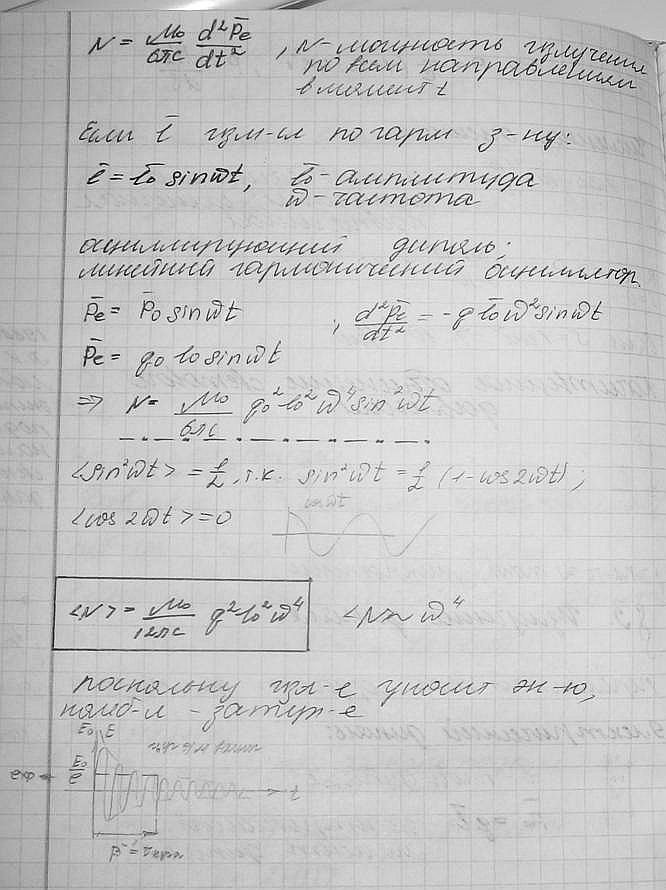 N = μ₀/6πc d²P̄e/dt² , N - мощность излучения
по всем направлениям
в момент t
Если l̄ изм-ся по гарм з-ну:
l̄ = l̄₀ sinωt, l̄₀ - амплитуда
ω - частота
осциллирующий диполь;
линейный гармонический осциллятор.
P̄e = P̄₀ sinωt ; d²P̄e/dt² = -q l̄₀ ω² sinωt
P̄e = q₀ l₀ sinωt
⇒ N = μ₀/6πc q₀² l₀² ω⁴ sin²ωt
<sin²ωt> = 1/2, т.к. sin²ωt = 1/2 (1-cos2ωt) ;
<cos2ωt> = 0
cosωt
<N> = μ₀/12πc q² l₀² ω⁴ <N> ~ ω⁴
поскольку изл-е уносит эн-ю,
E₀ E
E₀/e
t